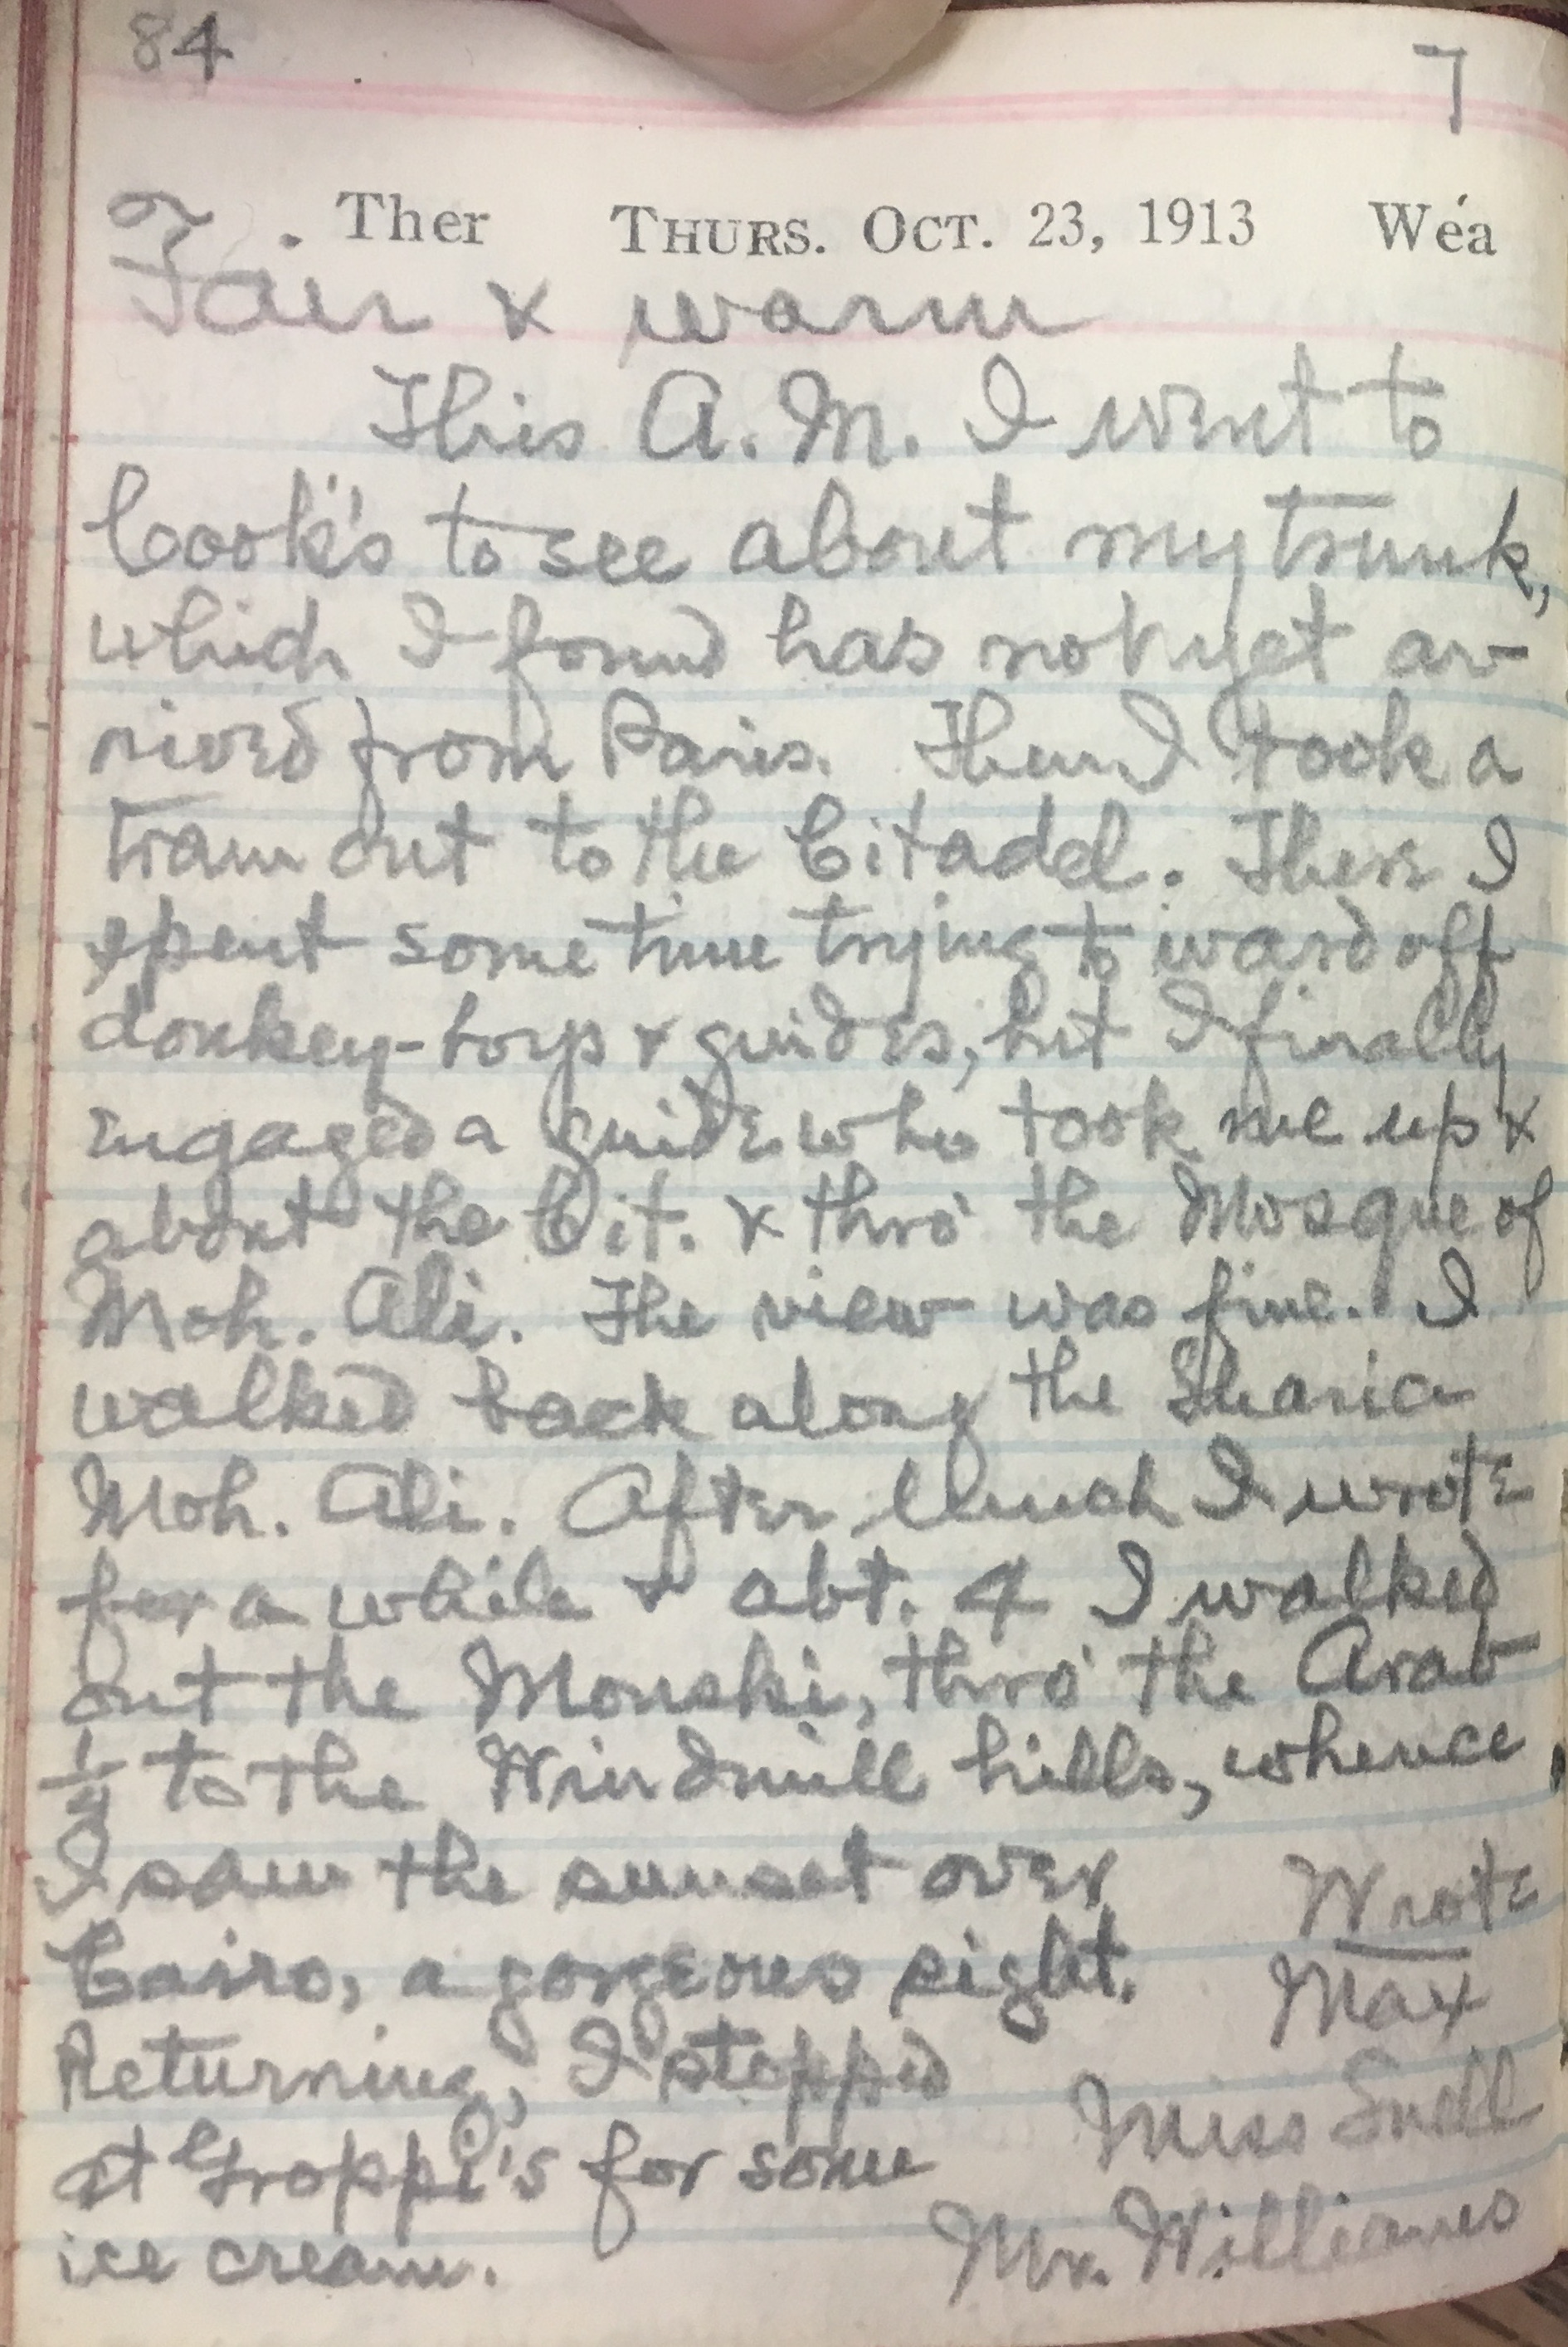 84 7
Ther THURS. OCT. 23, 1913 Wea
Fair & warm
This A.M. I went to
Cook's to see about my trunk,
which I found has not yet ar-
rived from Paris. Then I took a
tram out to the Citadel. There I
spent some time trying to ward off
donkey-boys & guides, but I finally
engaged a guide who took me up &
about the Cit. & thro' the Mosque of
Moh. Ali. The view was fine. I
walked back along the Sharia
Moh. Ali. After lunch I wrote
for a while & abt. 4 I walked
out the Mouski, thro' the Arab
1/4 to the Windmill hills, whence
I saw the sunset over
Cairo, a gorgeous sight.
Returning, I stopped
at Groppi's for some
ice cream.
Wrote
Max
Miss Snell
Mr. Williams